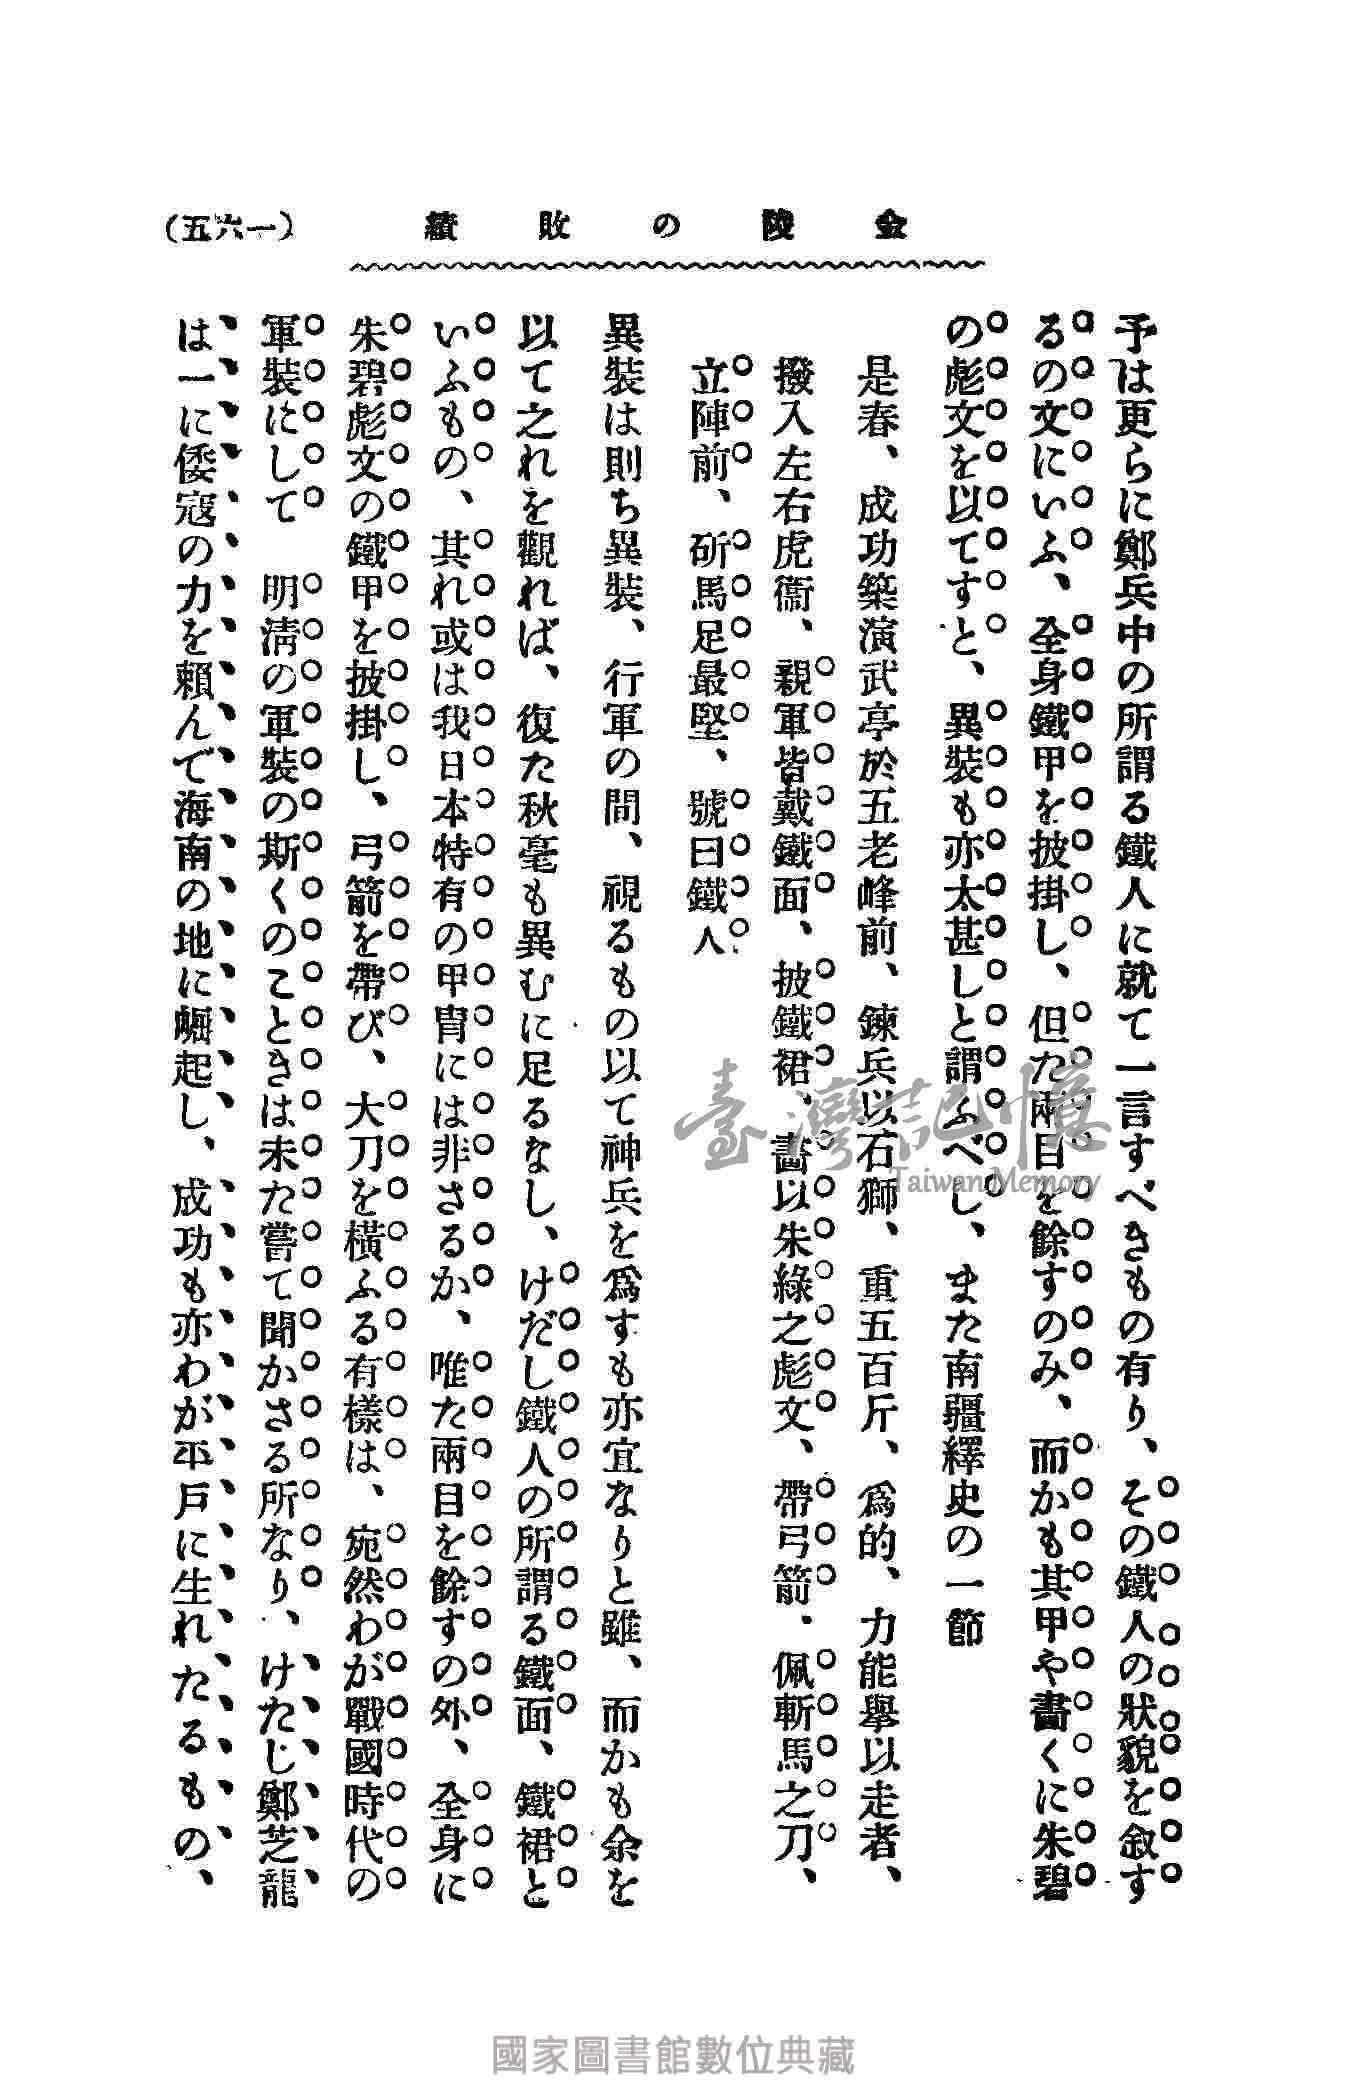 金陵の敗績
(一六五)
予は更らに鄭兵中の所謂る鐵人に就て一言すべきもの有り、その鐵人の狀貌を叙す
るの文にいふ、全身鐵甲を披掛し、但た兩目を餘すのみ、而かも其甲や畵くに朱碧
の彪文を以てすと、異裝も亦太甚しと謂ふべし、また南疆繹史の一節
是春、成功築演武亭於五老峰前、鍊兵以石獅、重五百斤、爲的、力能擧以走者、
撥入左右虎衞、親軍皆戴鐵面、披鐵裙、畵以朱綠之彪文、帶弓箭、佩斬馬之刀、
立陣前、斫馬足最堅、號曰鐵人、
異裝は則ち異裝、行軍の間、視るもの以て神兵を爲すも亦宜なりと雖、而かも余を
以て之れを觀れば、復た秋毫も異むに足るなし、けだし鐵人の所謂る鐵面、鐵裙と
いふもの、其れ或は我日本特有の甲冑には非さるか、唯た兩目を餘すの外、全身に
朱碧彪文の鐵甲を披掛し、弓箭を帶び、大刀を橫ふる有樣は、宛然わが戰國時代の
軍裝にして　明淸の軍裝の斯くのことときは未た嘗て聞かさる所なり、けたじ鄭芝龍
は一に倭寇の力を賴んで海南の地に崛起し、成功も亦わが平戶に生れたるもの、
臺灣記憶
Taiwan Memory
國家圖書館數位典藏